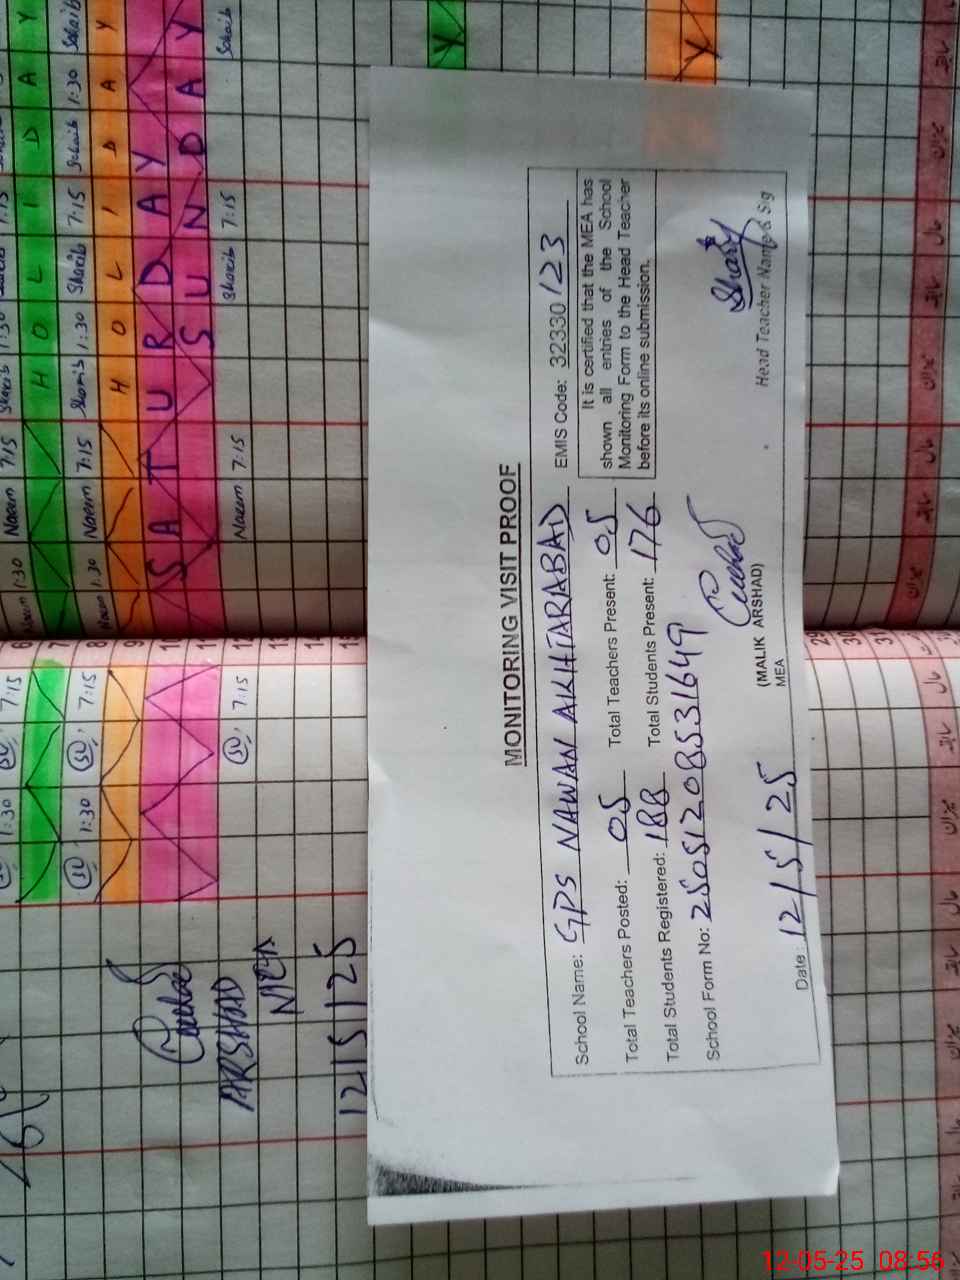 MONITORING VISIT PROOF
School Name: GPS NAWAN AKHTARABAD EMIS Code: 32330123
Total Teachers Posted: 05 Total Teachers Present: 05
Total Students Registered: 188 Total Students Present: 176
School Form No: 250512085331649
It is certified that the MEA has
shown all entries of the School
Monitoring Form to the Head Teacher
before its online submission.
(MALIK ARSHAD)
MEA
Head Teacher Name & Sig
Date: 12/5/25
ARSHAD
MEA
12/5/25
6 7:15 1:30 Naeem 7:15 1:30
7 HOLIDAY
8 7:15 1:30 Naeem 7:15 1:30 Shoaib 7:15 1:30
9 HOLIDAY
10 SATURDAY
11 SUNDAY
12 7:15 Naeem 7:15 Shoaib 7:15
13
14
15
29
30
31
میزان
سابقہ
حال
12-05-25 08:56